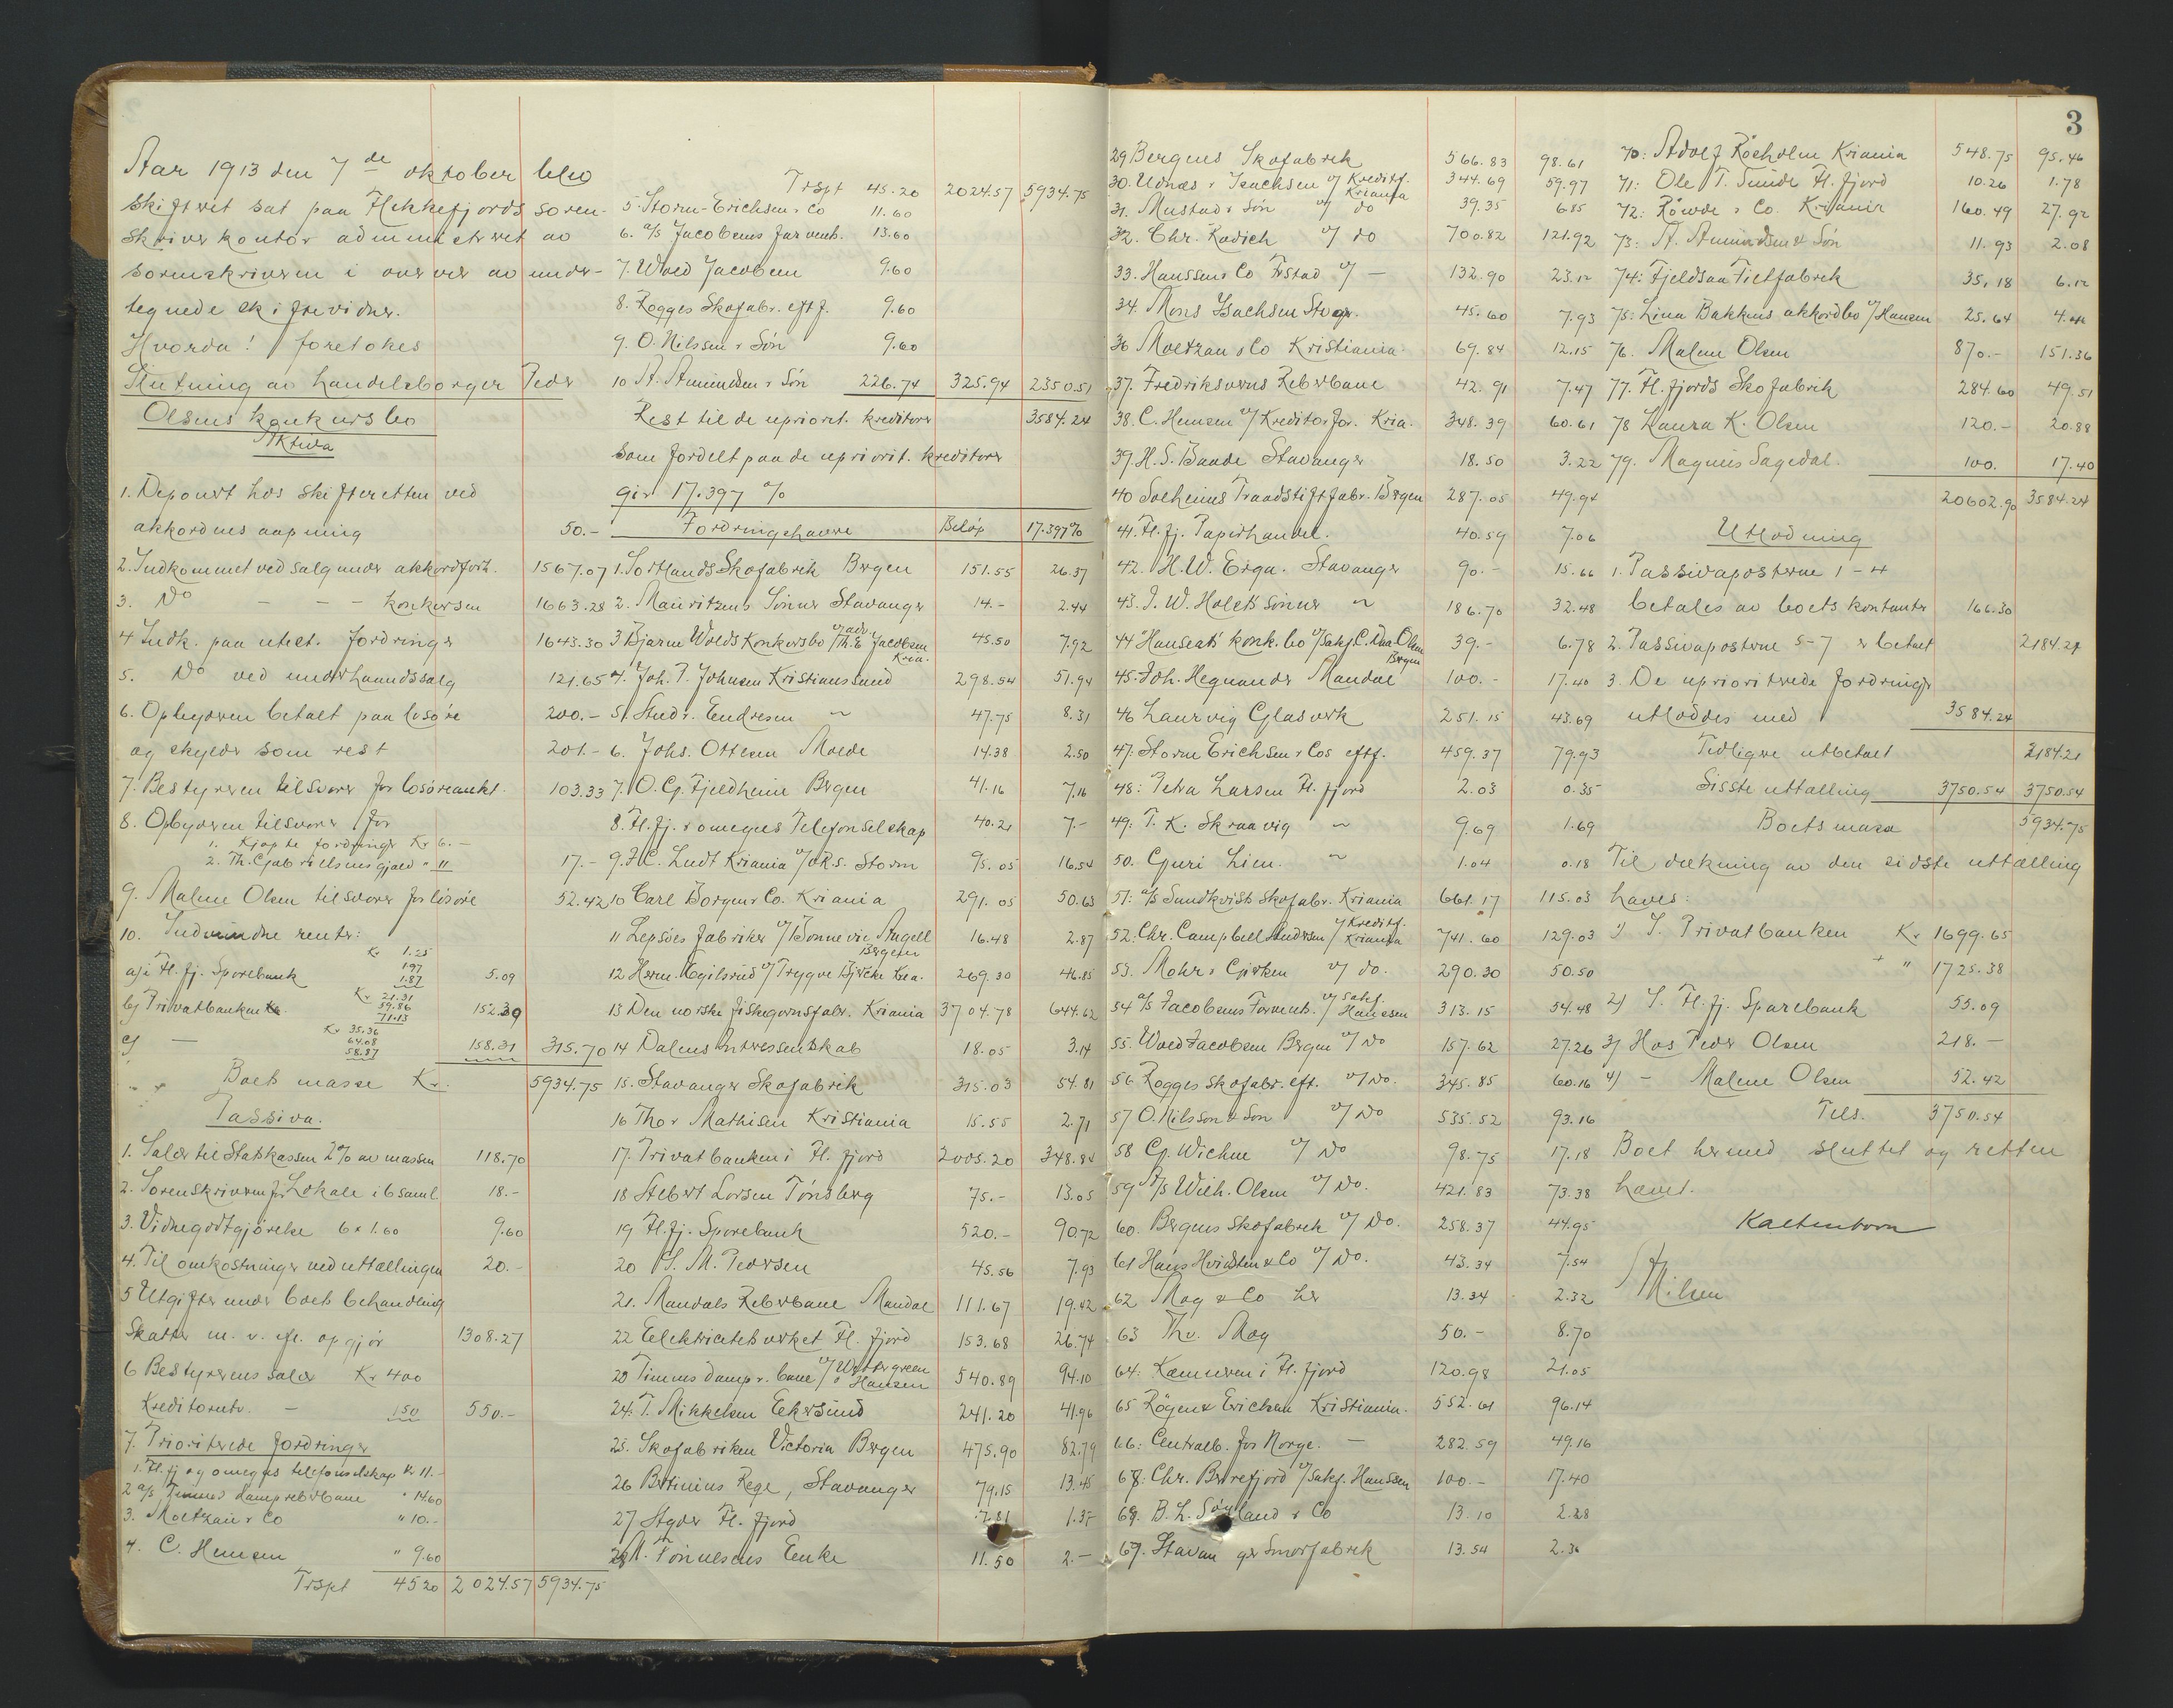 Aar 1913 den 7de oktober blev
skifteret sat paa Flekkefjords soren-
skriverkontor administreret av
sorenskriveren i overvær av under-
tegnede skiftevidner.
Hvorda! foretokes
Slutning av handelsborger Peder
Olsens konkursbo
Aktiva
1. Deponert hos skifteretten ved
akkordens aapning 50.-
2. Indkommet ved salg under akkordforh. 1567.07
3. Do - - - konkursen 1663.28
4 Indk. paa utest. fordringer 1643.30
5. Do ved underhaandssalg 121.65
6. Opbyderen betalt paa løsøre 200.-
og skylder som rest 201.-
7. Bestyreren tilsvarer for løsøreaukt. 103.33
8. Opbyderen tilsvarer for
1. Kjøpte fordringer Kr 6.-
2. Th. Gabrielsens gjæld " 11 17.-
9. Malene Olsen tilsvarer for løsøre 52.42
10. Indvundne renter:
Kr 1.25
a) i Fl. fj. Sparebank 1.97 5.09
1.87
b) Privatbanken Kr 21.31
39.86 152.39
71.13
c) - Kr 35.36
64.08 158.31 315.70
58.87
Boets masse Kr. 5934.75
Passiva.
1. Salær til Statskassen 2% av massen 118.70
2. Sorenskriveren for Lokale i 6 saml 18.-
3. Vidnegodtgjørelse 6 x 1.60 9.60
4. Til omkostninger ved uttællingen 20.-
5 Utgifter under boets behandling
Skatter m. v. efl. opgjør 1308.27
6 Bestyrerens salær Kr 400
Kreditorutv. - 150 550.-
7. Prioriterede fordringer
1. Fl. fj og omegns telefonselskap Kr 11.-
2 a/s Timmes dampreberbane " 14.60
3. Moltzau & Co " 10.-
4. C. Hensen " 9.60
Trspt 45.20 2024.57 5934.75
Trspt 45.20 2024.57 5934.75
5. Storm-Erichsen & Co 11.60
6. a/s Jacobsens farveh. 13.60
7. Wold Jacobsen 9.60
8. Rogges Skofabr. eftf. 9.60
9. O. Nilssen & Søn 9.60
10 A. Amundsen & Søn 226.74 325.94 2350.51
Rest til de upriorit. kreditorer 3584.24
som fordelt paa de upriorit. kreditorer
gir 17.397 %
Fordringshavere Beløp 17.397%
1. Sortlands Skofabrik Bergen 151.55 26.37
2. Mauritzens Sønner Stavanger 14.- 2.44
3 Bjarne Wolds Konkursbo v/adv. Th. E Jacobsen Kria. 45.50 7.92
4. Joh. P. Johnsen Kristianssund 298.54 51.94
5. Andr. Endresen ~ 47.75 8.31
6. Johs. Ottesen Molde 14.38 2.50
7. O. G. Fjeldheim Bergen 41.16 7.16
8. Fl. Fj. & omegns Telefonselskap 40.21 7.-
9. J. C. Ludt Kriania v/ oRs. Storm 95.05 16.54
10 Carl Borgen & Co. Kriania 291.05 50.63
11 Lepsøes fabriker v/ Bonnevie Angell Bergen 16.48 2.87
12 Herm. Egilsrud v/ Trygve Bjercke Kria. 269.30 46.85
13 Den norske fiskegarnsfabr. Kriania 3704.78 644.62
14 Dalens Interessentskab 18.05 3.14
15. Stavanger Skofabrik 315.03 54.81
16 Thor Mathisen Kristiania 15.55 2.71
17. Privatbanken i Fl. fjord 2005.20 348.84
18 Albert Larsen Tønsberg 75.- 13.05
19 Fl. fj. Sparebank 520.- 90.72
20 S. M. Pedersen 45.56 7.93
21. Mandals Reberbane Mandal 111.67 19.42
22 Eelektricitetsverket Fl. fjord 153.68 26.74
23 Timmes dampr. bane v/ Wettergreen & Hansen 540.89 94.10
24. T. Mikkelsen Eekersund 241.20 41.96
25. Skofabriken Victoria Bergen 475.90 82.79
26 Bertinius Rege, Stavanger 79.15 13.45
27 Agder Fl. fjord 7.81 1.35
28 A. Tønnesens Eenke 11.50 2.-
3
29 Bergens Skofabrik 566.83 98.61
30. Udnæs & Isachsen v/ Kreditf. Kriania 344.69 59.97
31. Mustad & Søn v/ do 39.35 6.85
32. Chr. Radich v/ do 700.82 121.92
33. Hanssen & Co Fr.stad v/ - 132.90 23.12
34. Mons Isachsen Stvgr. 45.60 7.93
36 Moltzau & Co Kristiania 69.84 12.15
37. Fredriksverns Reberbane 42.91 7.47
38. C. Hensen v/ Kreditorfor. Kria. 348.39 60.61
39. H. S. Baade Stavanger 18.50 3.22
40 Solheims Traadstiftfabr. Bergen 287.05 49.94
41. Fl. fj. Papirhandel. 40.59 7.06
42. H. W. Erga. Stavanger 90.- 15.66
43. J. W. Holck Sønner ~ 186.70 32.48
44 "Hanseat" konk. bo v/ sakf. C. Dan Olsen Bergen 39.- 6.78
45. Joh. Hegnander Mandal 100.- 17.40
46 Laurvig Glasverk 251.15 43.69
47. Storm Erichsen & Cos eftf. 459.37 79.93
48: Petra Larsen Fl. fjord 2.03 0.35
49: T. K. Skraavig ~ 9.69 1.69
50. Guri Lien. ~ 1.04 0.18
51: a/s Sundkvist Skofabr. Kriania 661.17 115.03
52: Chr. Campbell Andersen v/ Kreditf. Kriania 741.60 129.03
53. Mohr & Gjerken v/ do. 290.30 50.50
54 a/s Jacobsens Farveh. v/ sakf. Hanssen 313.15 54.48
55. Wold Jacobsen Bergen v/ Do 157.62 27.26
56 Rogges Skofabr. eft. v/ Do. 345.85 60.16
57 O. Nilsson & Søn v/ Do 535.52 93.16
58 G. Wichne v/ Do 98.75 17.18
59 A/s Wilh. Olsen v/ Do. 421.83 73.38
60. Bergens Skofabrik v/ Do. 258.37 44.95
61 Hans Hvidsten & Co v/ Do. 43.34 7.54
62 Mag & Co her 13.34 2.32
63 Thv. Mag 50.- 8.70
64: Kæmneren i Fl. fjord 120.98 21.05
65 Røgen & Erichsen Kristiania. 552.61 96.14
66: Centralb. for Norge. - 282.59 49.16
68: Chr. Berrefjord v/ sakf. Hanssen 100.- 17.40
69. B. L. Søyland & Co 13.10 2.28
69. Stavanger Smørfabrik 13.54 2.36
70: Adolf Røeholm Kriania 548.75 95.46
71: Ole T. Sunde Fl. fjord 10.26 1.78
72: Røwde & Co. Kriania 160.49 27.92
73: A. Amundsen & Søn 11.93 2.08
74: Fjeldsaa Filtfabrik 35.18 6.12
75: Lina Bakkens akkordbo v/ Hansen 25.64 4.46
76. Malene Olsen 870.- 151.36
77. Fl. fjords Skofabrik 284.60 49.51
78 Laura K. Olsen 120.- 20.88
79. Magnus Sagedal. 100. 17.40
20602.90 3584.24
Utlodning
1. Passivaposterne 1 - 4
betales av boets kontanter 166.30
2. Passivaposterne 5-7 er betalt 2184.21
3. De uprioriterede fordringer
utloddes med 3584.24
Tidligere utbetalt 2184.21
Sisste uttælling 3750.54 3750.54
Boets masse 5934.75
Til dækning av den sidste uttælling
haves:
1) I Privatbanken Kr 1699.65
+ " 1725.38
2) I Fl. fj. Sparebank 55.09
3) Hos Peder Olsen 218.-
4) - Malene Olsen 52.42
Tils. 3750.54
Boet hermed sluttet og retten
hævet.
Kaltenborn